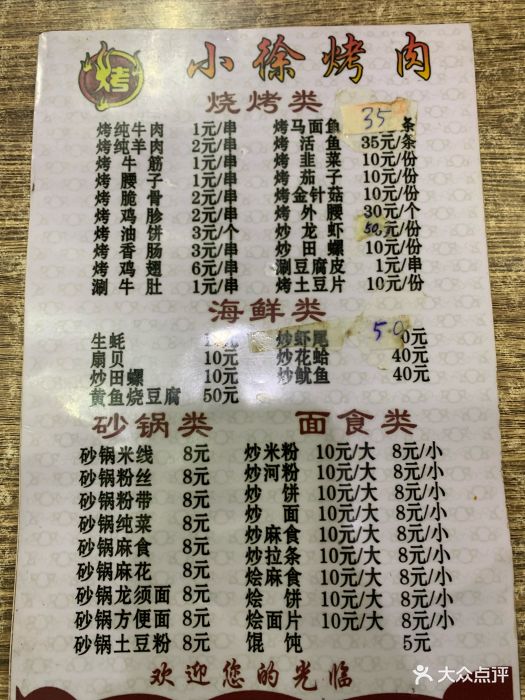 烤
小徐烤肉
烧烤类
烤纯牛肉 1元/串
烤纯羊肉 2元/串
烤牛筋 1元/串
烤腰子 1元/串
烤脆骨 2元/串
烤鸡胗 2元/串
烤油饼 3元/个
烤香肠 3元/串
烤鸡翅 6元/串
涮牛肚 1元/串
烤马面鱼 35 条
烤活鱼 35元/条
烤韭菜 10元/份
烤茄子 10元/份
烤金针菇 10元/份
烤外腰 30元/个
炒龙虾 50元/份
炒田螺 10元/份
涮豆腐皮 1元/串
烤土豆片 10元/份
海鲜类
生蚝 元
扇贝 10元
炒田螺 10元
黄鱼烧豆腐 50元
炒虾尾 50 0元
炒花蛤 40元
炒鱿鱼 40元
砂锅类
砂锅米线 8元
砂锅粉丝 8元
砂锅粉带 8元
砂锅纯菜 8元
砂锅麻食 8元
砂锅麻花 8元
砂锅龙须面 8元
砂锅方便面 8元
砂锅土豆粉 8元
面食类
炒米粉 10元/大 8元/小
炒河粉 10元/大 8元/小
炒饼 10元/大 8元/小
炒面 10元/大 8元/小
炒麻食 10元/大 8元/小
炒拉条 10元/大 8元/小
烩麻食 10元/大 8元/小
烩饼 10元/大 8元/小
烩面片 10元/大 8元/小
馄饨 5元
欢迎您的光临
大众点评